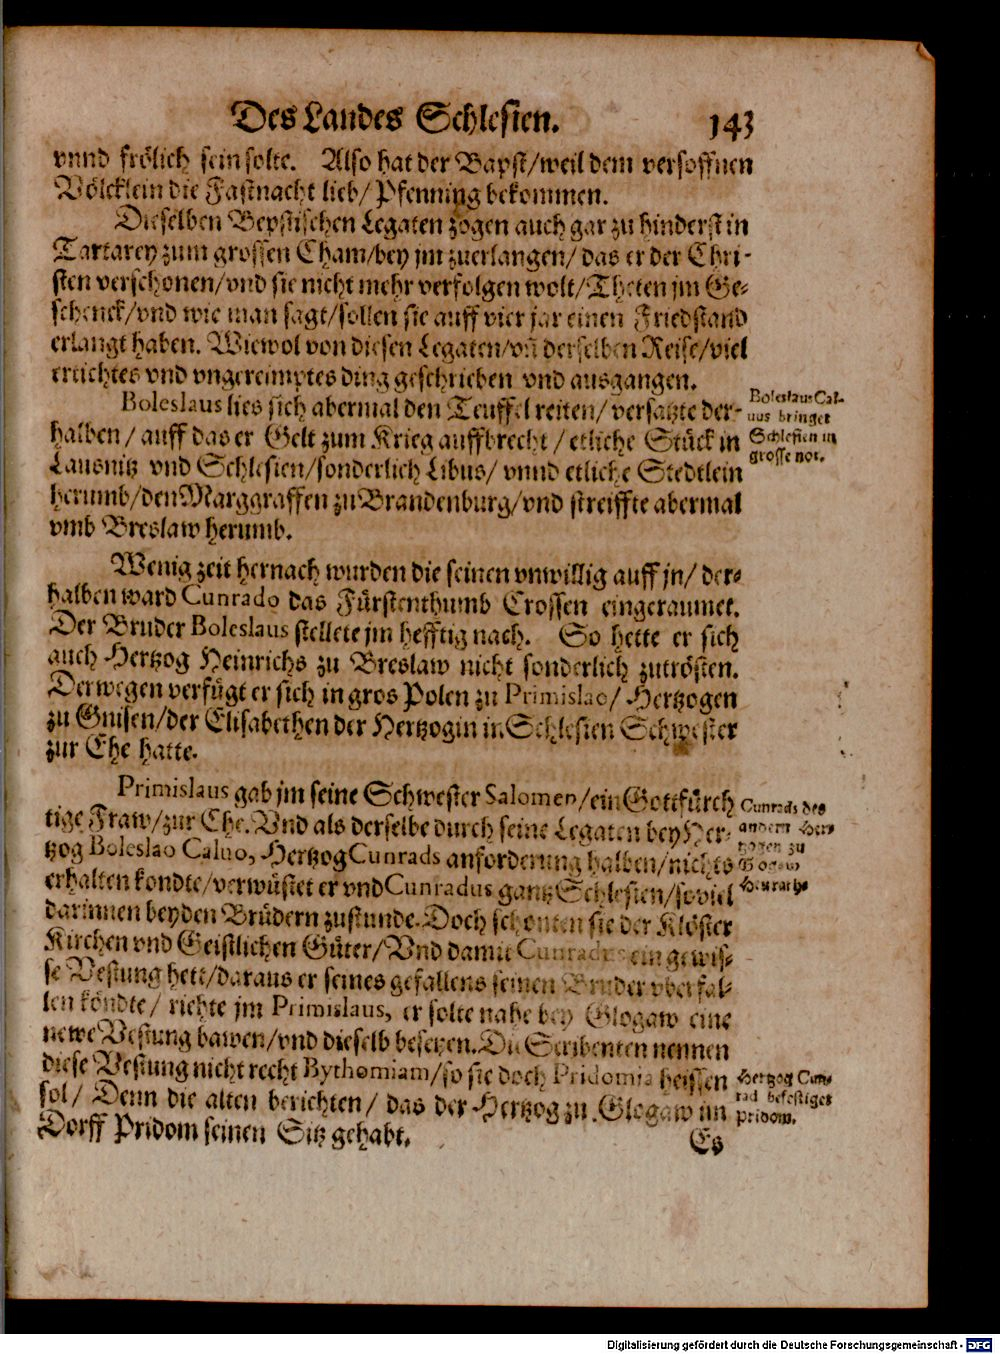 Des Landes Schlesien. 143
vnnd frölich sein solte. Also hat der Bapst/weil dem versoffnen
Völcklein die Fastnacht lieb/ Pfenning bekommen.
Dieselben Bepstischen Legaten zogen auch gar zu hinderst in
Tartarey zum grossen Cham/bey jm zuerlangen/ das er der Chri-
sten verschonen/vnd sie nicht mehr verfolgen wolt/Theten jm Ge-
schenck/vnd wie man sagt/sollen sie auff vier jar einen Friedstand
erlangt haben. Wiewol von diesen Legaten/vñ derselben Reise/viel
ertichtes vnd vngereimptes ding geschrieben vnd ausgangen.
Boleslaus lies sich abermal den Teuffel reiten/ versatzte der-
halben/ auff das er Gelt zum Krieg auffbrecht/ etliche Stück in
Lausnitz vnd Schlesien/sonderlich Libus/ vnnd etliche Stedtlein
herumb/den Marggraffen zu Brandenburg/vnd streiffte abermal
vmb Breslaw herumb.
Boleslaus Cal-
uus bringet
Schlesien in
grosse not.
Wenig zeit hernach wurden die seinen vnwillig auff jn/ der-
halben ward Cunrado das Fürstenthumb Crossen eingeraumet.
Der Bruder Boleslaus stellete jm hefftig nach. So hette er sich
auch Hertzog Heinrichs zu Breslaw nicht sonderlich zutrösten.
Derwegen verfügt er sich in gros Polen zu Primislao/ Hertzogen
zu Gnisen/der Elisabethen der Hertzogin in Schlesien Schwester
zur Ehe hatte.
Primislaus gab jm seine Schwester Salomen/ein Gottfürch
tige Fraw/zur Ehe. Vnd als derselbe durch seine Legaten bey Her-
tzog Boleslao Caluo, Hertzog Cunrads anforderung halben/nichts
erhalten kondte/verwüstet er vnd Cunradus gantz Schlesien/soviel
darinnen beyden Brüdern zustunde. Doch schonten sie der Klöster
Kirchen vnd Geistlichen Güter/Vnd damit Cunradus ein gewis-
se Vestung hett/daraus er seines gefallens seinen Bruder vberfal-
len köndte/ richte jm Primislaus, er solte nahe bey Glogaw eine
newe Vestung bawen/vnd dieselb besetzen. Die Scribenten nennen
diese Vestung nicht recht Bythomiam/so sie doch Pridomia heissen
sol/ Denn die alten berichten/ das der Hertzog zu Glogaw im
Dorff Pridom seinen Sitz gehabt.
Cunrads des
andern Hertzogen zu
Glogaw
Heurath
Hertzog Cun-
rad befestiget
Pridom.
Es
Digitalisierung gefördert durch die Deutsche Forschungsgemeinschaft - DFG